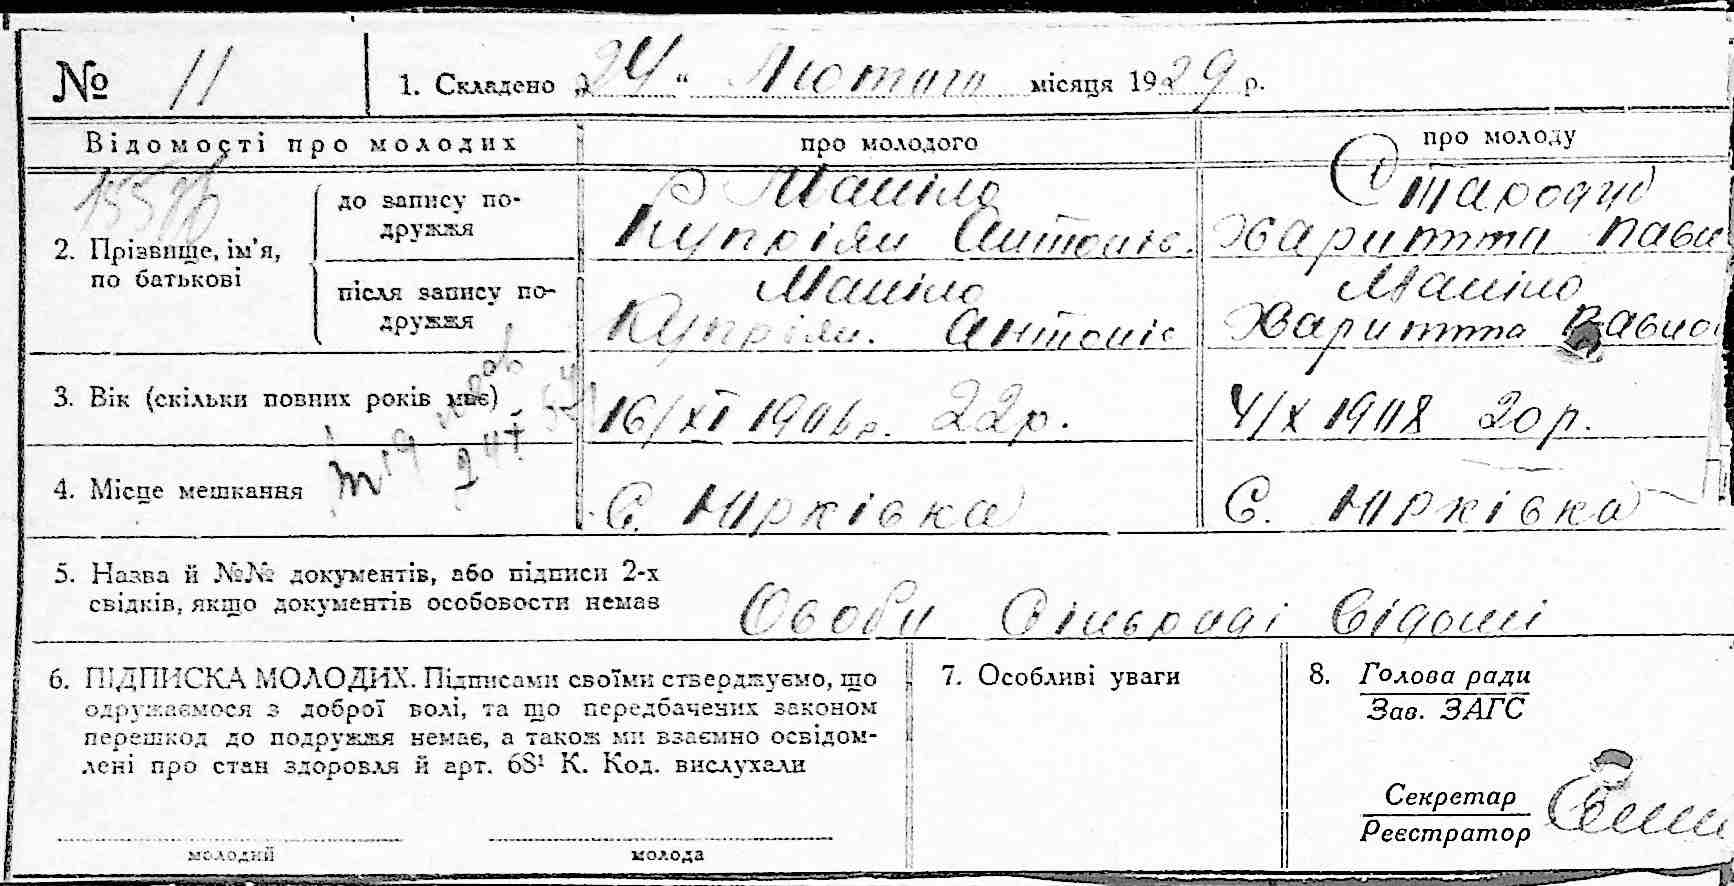 № 11
1. Складено „24" Лютого місяця 1929 р.
Відомості про молодих
про молодого
про молоду
2. Прізвище, ім'я, по батькові
до запису по-
дружжя
Маніло
Купріян Антонів.
Стародуб
Харитта Павл
після запису по-
дружжя
Маніло
Купріян. Антонів
Маніло
Харитта Павло
3. Вік (скільки повних років має)
16/XI 1906р. 22р.
4/X 1908 20р.
4. Місце мешкання
С. Юрківка
С. Юрківка
5. Назва й №№ документів, або підписи 2-х
свідків, якщо документів особовости немає
Особи Сільраді Відомі
6. ПІДПИСКА МОЛОДИХ. Підписами своїми стверджуємо, що
одружаємося з доброї волі, та що передбачених законом
перешкод до подружжя немає, а також ми взаємно освідом-
лені про стан здоровля й арт. 68¹ К. Код. вислухали
молодий
молода
7. Особливі уваги
8. Голова ради
Зав. ЗАГС
Секретар
Реєстратор